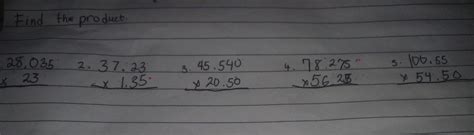 Find the product.
28.035 2. 37.23 3. 45.540 4. 78.275 5. 100.55
x 23 x 1.35 x 20.50 x 56.25 x 54.50